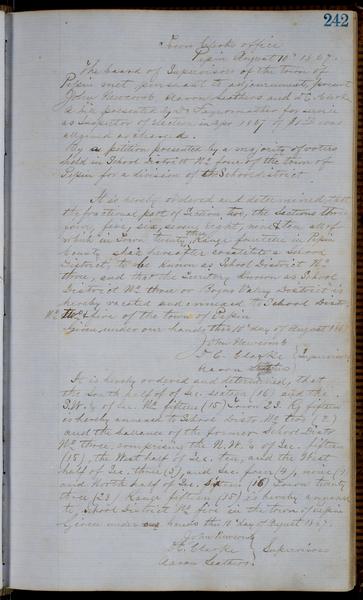 242
Town Clerks office
Pepin August 10th 1867.
The board of Supervisors of the town of
Pepin met pursuant to adjournment, present
John Newcomb, Aaron Leathers and
presented by for service
as Inspector of Election in Apr 1867 of was
allowed as charged.
By a petition presented by a majority of voters
held in School District No four of the town of
Pepin for a division of School district
It is hereby ordered and determined, that
the fractional part of Section two, the Sections three
four, five, six, seven, eight, nine & ten all of
which in Town twenty Range fourteen in Pepin
County shall hereafter constitute a School
District, to be known as School District No
three, and that the Territory known as School
District No three or Bogus Valley District is
hereby vacated and annexed to School Dist.
No & five of the town of Pepin
Given under our hands this 10th day of August 1867
John Newcomb
T. C. Clarke } Supervisors
Aaron Leathers
It is hereby ordered and determined, that
the South half of of Sec. section (16) and the
S.W. 1/4 of Sec. No fifteen (15) Town 23. Rg fifteen
is hereby annexed to School Dist. No two (2)
and the ballance of the former School Dist.
No three, comprising the N.W. 1/4 of Sec. fifteen
(15), the West half of Sec. ten, and the West
half of Sec. three (3), and Sec. four (4), nine (9)
and North half of Sec. sixteen (16) Town twenty
three (23) Range fifteen (15) is hereby annexed
to School District No five in the town of Pepin
Given under our hands the 10th day of August 1867.
John Newcomb
T. C. Clarke } Supervisors
Aaron Leathers